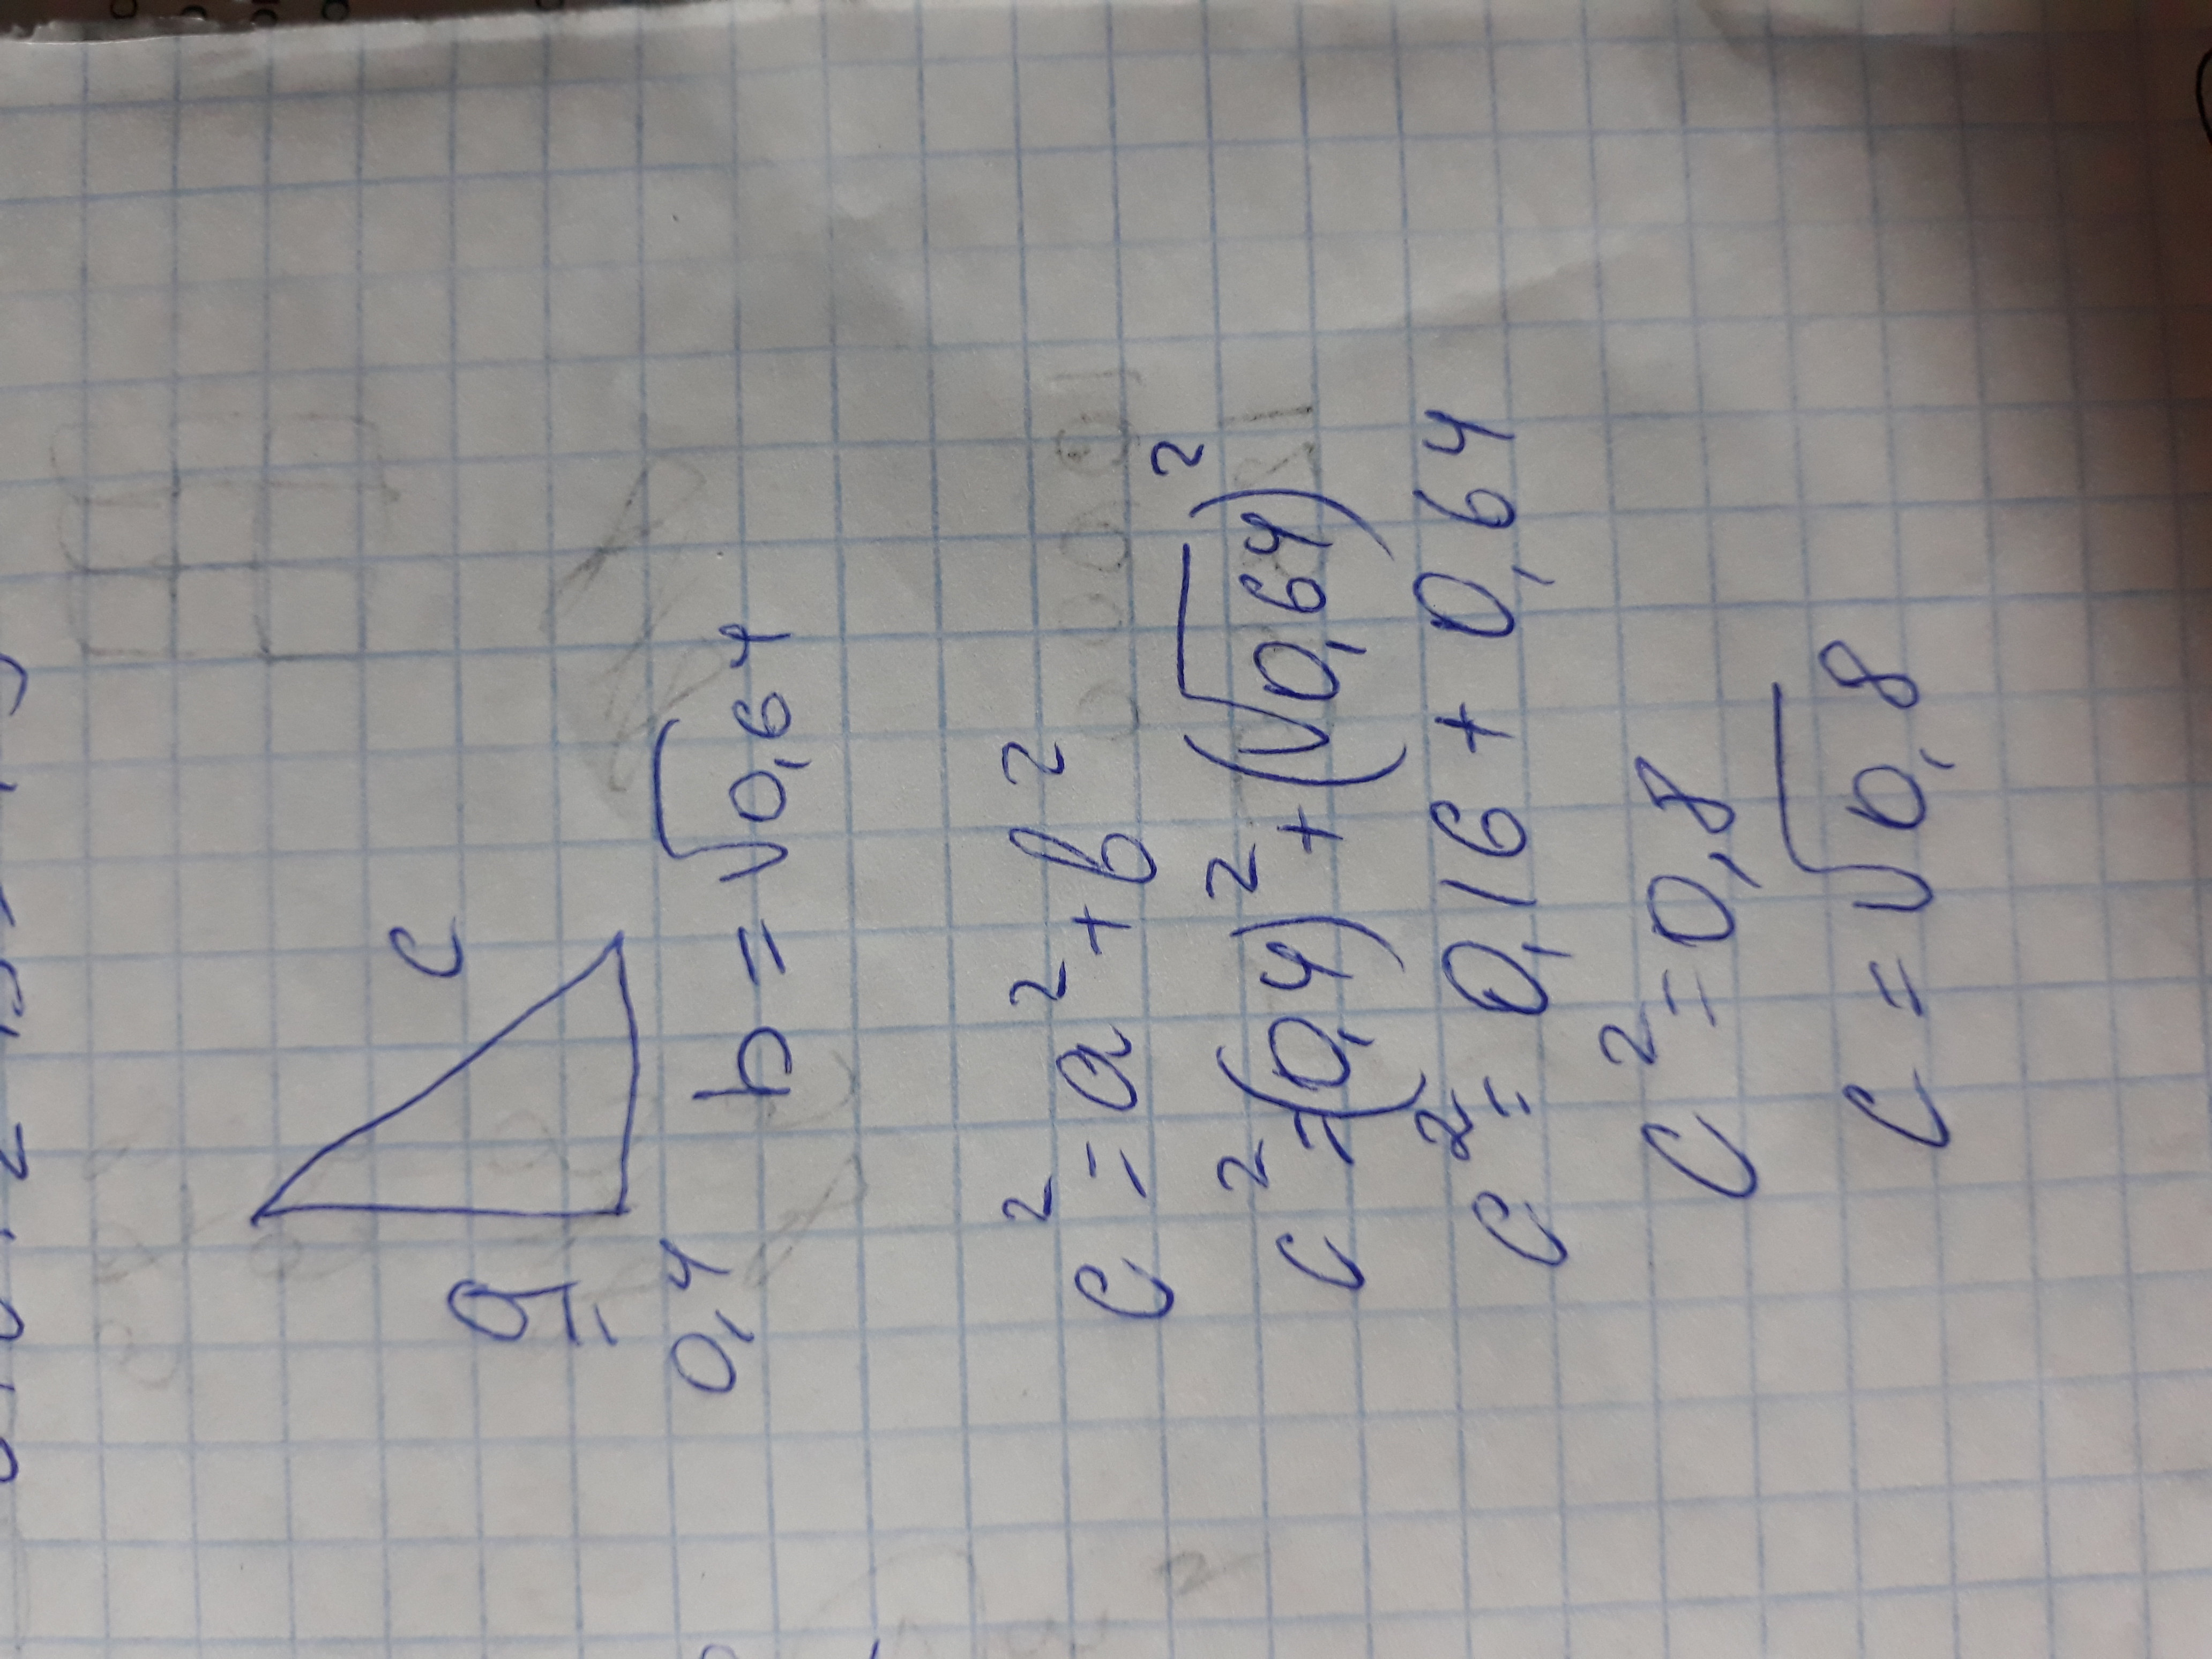 c
a
=
0,4
b = √0,64
c² = a² + b²
c² = (0,4)² + (√0,64)²
c² = 0,16 + 0,64
c² = 0,8
c = √0,8